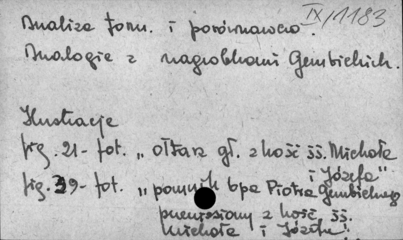 IX/1183
Analiza form. i porównawcza.
Analogie z nagrobkami Gembickich.
Ilustracje
fig. 21 - fot. „ołtarz gł. z kośc śś. Michała
i Józefa"
fig. 39 - fot. „pomnik bpa Piotra Gembickiego
przeniesiony z kośc. śś.
Michała i Józefa".